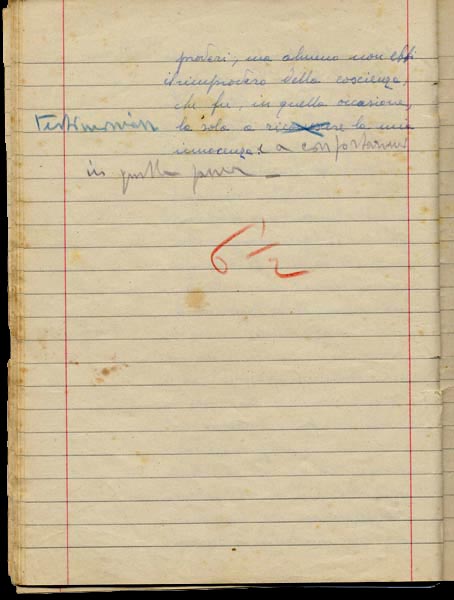 poderi, ma almeno non ebbi
il rimprovero della coscienza,
che fu, in quella occasione,
testimoniare
la sola a riconoscere la mia
innocenza e a confortarmi
in quella pena
6 1/2